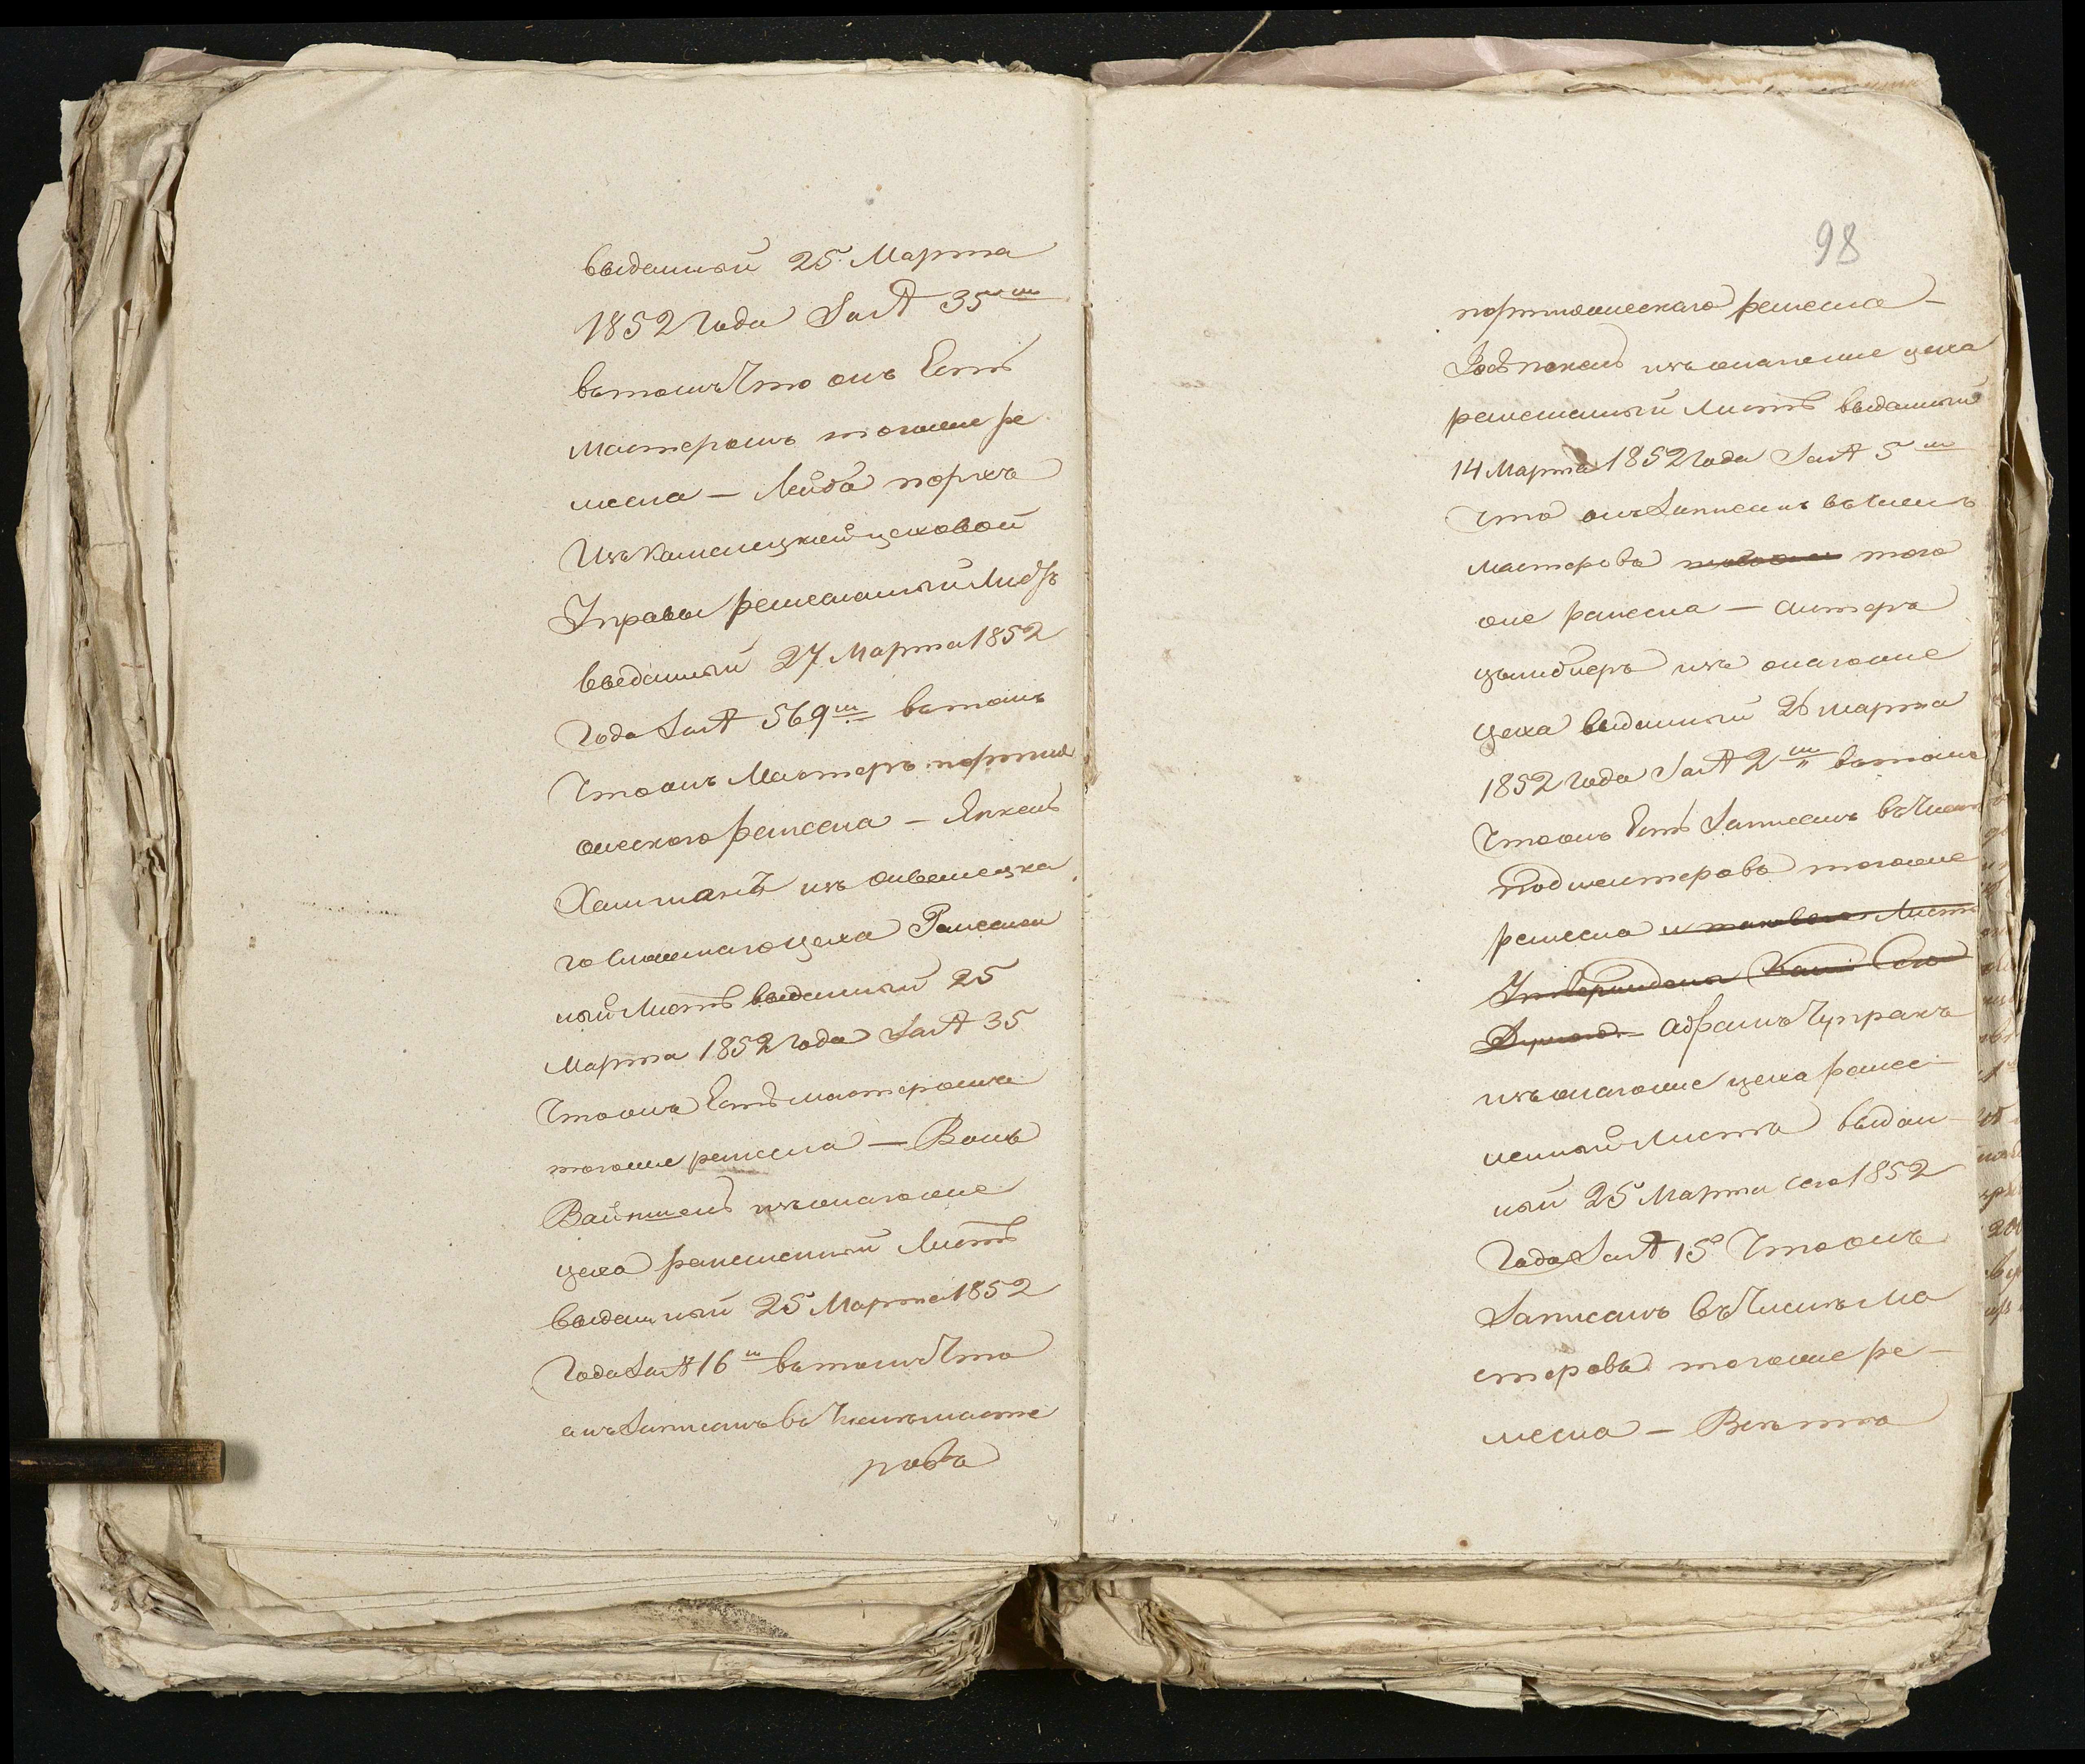 выданный 25 Марта
1852 года За № 35 м
въ томъ Что онъ Есть
мастеромъ тогоже ре
месла — Лейба порхъ
Изъ Каменецкой цеховой
Управы ремесланный Листъ
выданный 27 Марта 1852
Года За № 569 м въ томъ
Что онъ Мастеръ портня
жескаго ремесла — Янкель
Хаитанъ изъ
го цеха Ремеслен
ный Листъ выданный 25
Марта 1852 Года За № 35
Что онъ Есть мастеромъ
тогоже ремесла — Волъ
Вайншель изъ онагоже
цеха ремесленный Листъ
выданный 25 Марта 1852
Года За № 16 м въ томъ Что
онъ Записанъ въ Числъ масте
ровъ
98
портняжескаго ремесла —
изъ онагоже цеха
ремесланный Листъ выданный
14 Марта 1852 Года За № 5 м
Что онъ Записанъ въ Числъ
мастеровъ того
же ремесла —
изъ онагоже
цеха выданный 26 марта
1852 Года За № 2 м въ томъ
Что онъ Есть Записанъ въ Числъ
Подмастеровъ тогоже
ремесла и таковаго Листъ
Абрамъ Чупракъ
изъ онагоже цеха ремес
ленный Листъ выдан
ный 25 Марта сего 1852
Года За № 15 Что онъ
Записанъ въ Числъ Ма
стеровъ тогоже ре —
месла —